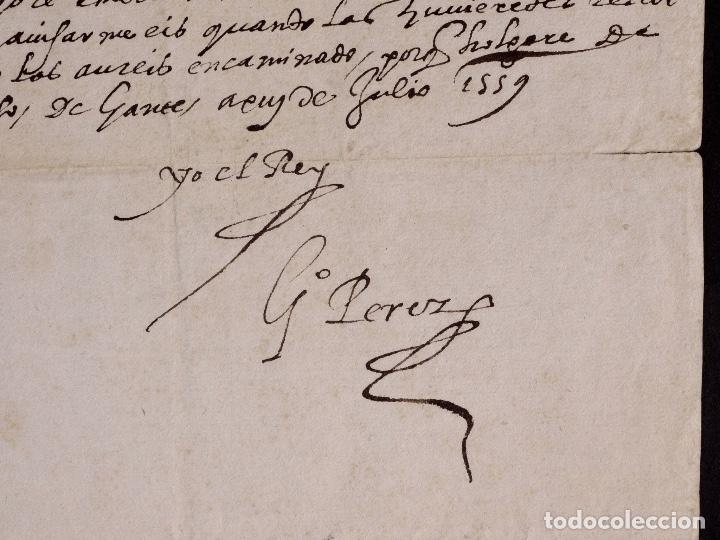 auisarmeeis quando las huuieredes
los aureis encaminado, porq̃ holgare de
De Gante, a de Julio 1559
yo el Rey
G.º Perez
todocoleccion